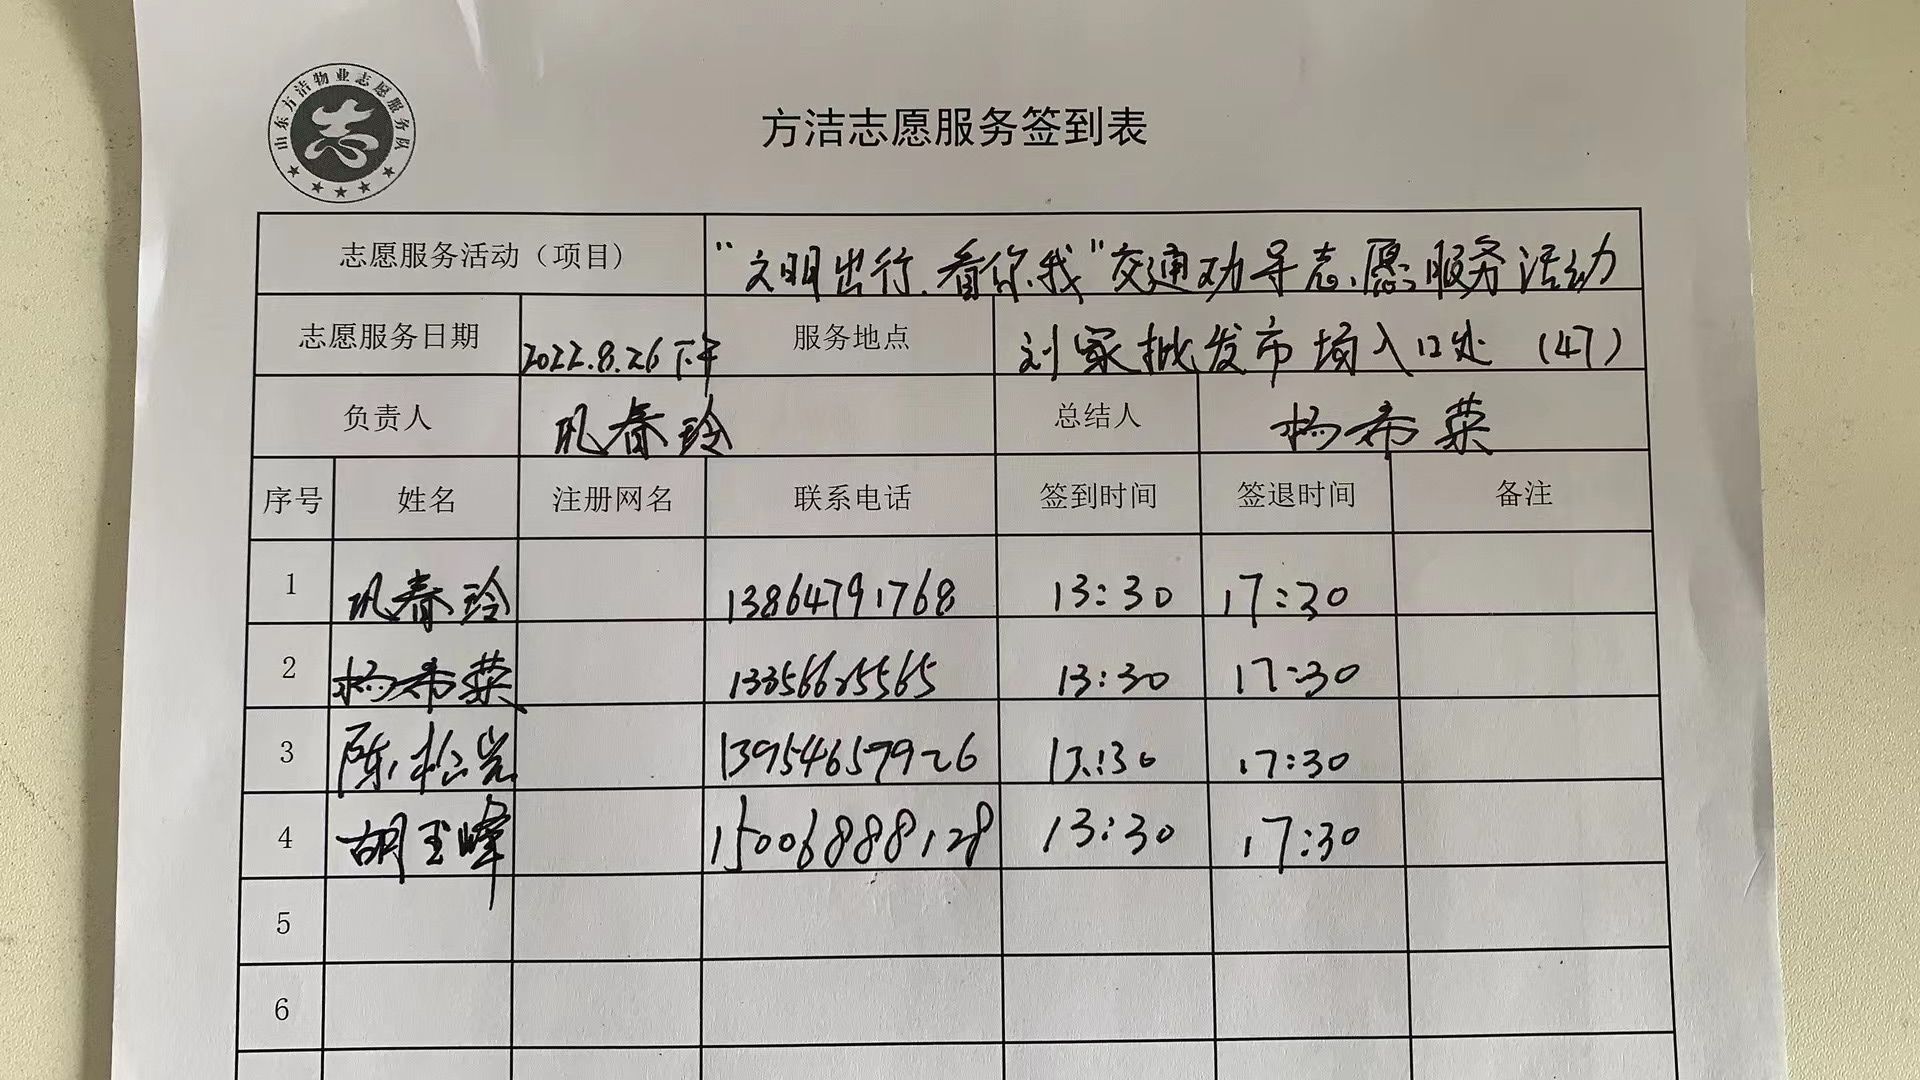 山东方洁物业志愿服务队
志
方洁志愿服务签到表
志愿服务活动（项目） “文明出行.看你.我”交通劝导志愿服务活动
志愿服务日期 2022.8.26下午 服务地点 刘家批发市场入口处 (47)
负责人 巩春玲 总结人 杨希荣
序号 姓名 注册网名 联系电话 签到时间 签退时间 备注
1 巩春玲 13864791768 13:30 17:30
2 杨希荣 13356625565 13:30 17:30
3 陈松岩 13954657926 13:30 17:30
4 胡玉峰 15006888128 13:30 17:30
5
6